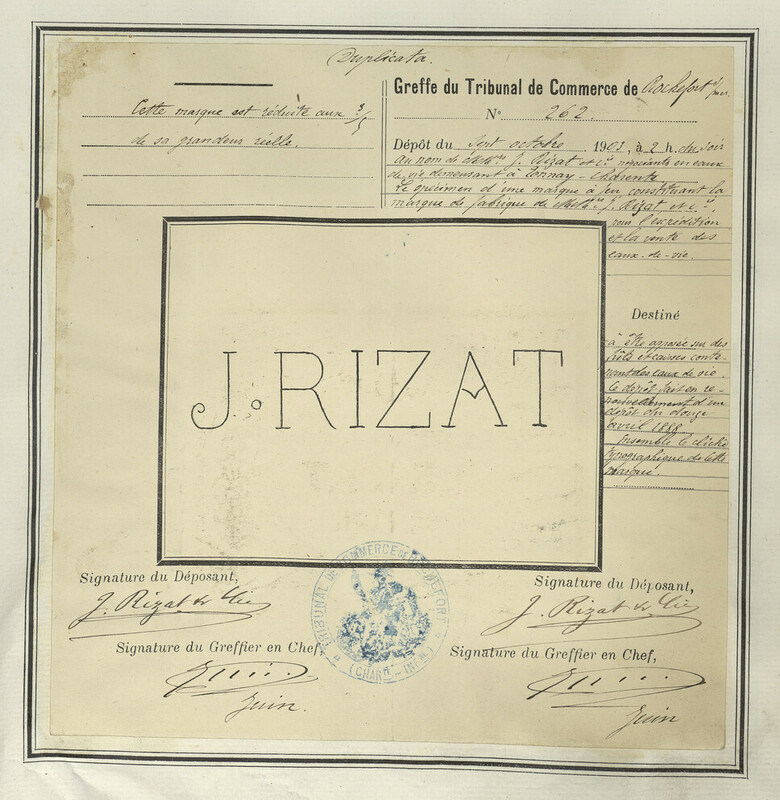 Duplicata.
Cette marque est réduite aux 3/5
de sa grandeur réelle.
Greffe du Tribunal de Commerce de Rochefort s/mer
N° 262.
Dépôt du sept octobre 1903, à 2 h. du soir
Au nom de MM. J. Rizat et Cie négociants en eaux
de vie demeurant à Tonnay-Charente.
Le spécimen d'une marque à feu constituant la
marque de fabrique de MM. J. Rizat et Cie.
pour l'expédition
et la vente des
eaux-de-vie.
Destiné
à être apposée sur des
fûts et caisses conte-
nant des eaux de vie
le dépôt fait en re-
nouvellement d'un
dépôt du douze
avril 1888
Ensemble le cliché
typographique de cette
marque.
J. RIZAT
TRIBUNAL DE COMMERCE DE ROCHEFORT
(CHARte-INFre)
Signature du Déposant,
J. Rizat & Cie
Signature du Greffier en Chef,
Juin.
Signature du Déposant,
J. Rizat & Cie
Signature du Greffier en Chef,
Juin